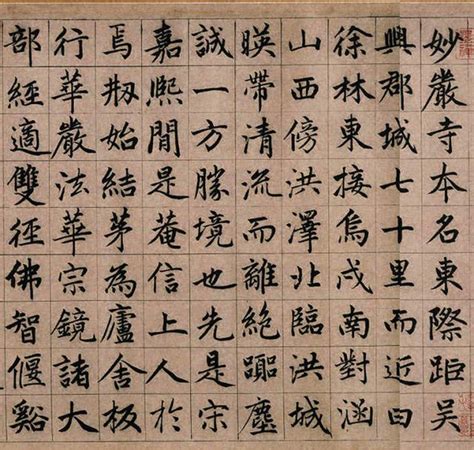 妙嚴寺本名東際距吳
興郡城七十里而近曰
徐林東接烏戍南對涵
山西傍洪澤北臨洪城
暎帶清流而離絕塵
誠一方勝境也先是宋
嘉熙間是菴信上人於
焉剏始結茅為廬舍板
行華嚴法華宗鏡諸大
部經適雙徑佛智偃谿